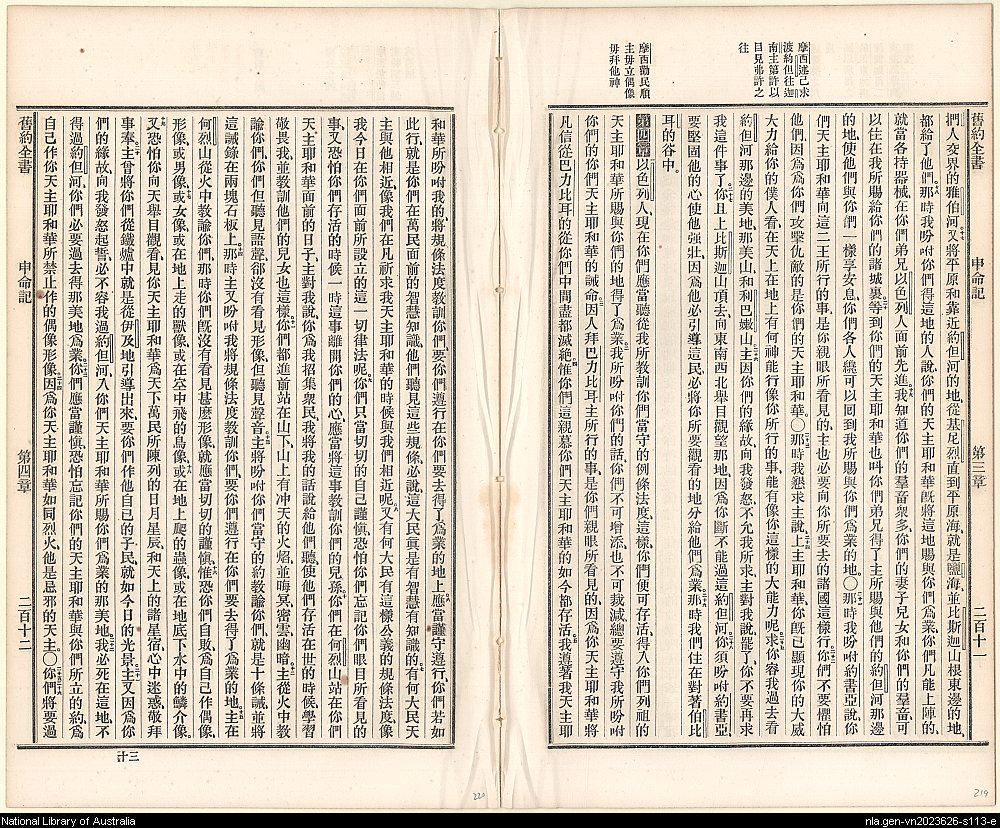 摩西述己求
渡約但往迦
南主第許以
目見弗許之
往
摩西勸民順
主毋立偶像
毋拜他神
舊約全書 申命記 第三章 二百十一
捫人交界的雅伯河又將平原和靠近約但河的地從基尼烈直到平原海就是鹽海並比斯迦山根東邊的地
都給了他們那時我吩咐你們得這地的人說你們的天主耶和華既將這地賜與你們為業你們凡能上陣的
就當各持器械在你們弟兄以色列人面前先進我知道你們的羣畜衆多你們的妻子兒女和你們的羣畜可
以住在我所賜給你們的諸城裏等到你們的天主耶和華也叫你們弟兄得了主所賜與他們的約但河那邊
的地使他們與你們一樣享安息你們各人纔可以回到我所賜與你們為業的地〇那時我吩咐約書亞說你
們天主耶和華向這二王所行的事是你親眼所看見的主也必要向你所要去的諸國這樣行你們不要懼怕
他們因為為你們攻擊仇敵的是你們的天主耶和華〇那時我懇求主說上主耶和華你既已顯現你的大威
大力給你的僕人看在天上在地上有何神能行像你所行的事能有像你這樣的大能力呢求你容我過去看
約但河那邊的美地那美山和利巴嫩山主因你們的緣故向我發怒不允我所求主對我說罷了你不要再求
我這件事了你且上比斯迦山頂去向東南西北舉目觀望那地因為你斷不能過這約但河你須吩咐約書亞
要堅固他的心使他强壯因為他必引導這民必將你所要觀看的地分給他們為業那時我們住在對著伯比
耳的谷中
第四章以色列人現在你們應當聽從我所教訓你們當守的例條法度這樣你們便可存活得入你們列祖的
天主耶和華所賜與你們的地得了為業我所吩咐你們的話你們不可增添也不可裁減總要遵守我所吩咐
你們的你們天主耶和華的誡命因人拜巴力比耳主所行的事是你們親眼所看見的因為你天主耶和華將
凡信從巴力比耳的從你們中間盡都滅絕惟你們這親慕你們天主耶和華的如今都存活我遵著我天主耶
和華所吩咐我的將規條法度教訓你們要你們遵行在你們要去得了為業的地上應當謹守遵行你們若如
此行就是你們在萬民面前的智慧知識他們聽見這些規條必說這大民眞是有智慧有知識的有何大民天
主與他相近像我們在凡祈求我天主耶和華的時候與我們相近呢又有何大民有這樣公義的規條法度像
我今日在你們面前所設立的這一切律法呢你們只當切切的自己謹愼恐怕你們忘記你們眼目所看見的
事又恐怕你們存活的時候一時這事離開你們的心應當將這事教訓你們的兒孫你們在何烈山站在你們
天主耶和華面前的日子主對我說你為我招集衆民我將我的話說給他們聽使他們存活在世的時候學習
敬畏我並教訓他們的兒女也這樣你們都進前站在山下山上有冲天的火焰並晦冥密雲幽暗主從火中敎
諭你們你們但聽見語聲卻沒有看見形像但聽見聲音主將吩咐你們當守的約敎諭你們就是十條誡並將
這誡錄在兩塊石板上那時主又吩咐我將規條法度教訓你們要你們遵行在你們要去得了為業的地主在
何烈山從火中教諭你們那時你們旣沒有看見甚麼形像就應當切切的謹愼惟恐你們自敗為自己作偶像
形像或男像或女像或在地上走的獸像或在空中飛的鳥像或在地上爬的蟲像或在地底下水中的鱗介像
又恐怕你向天舉目觀看見你天主耶和華為天下萬民所陳列的日月星辰和天上的諸星宿心中迷惑敬拜
事奉主曾將你們從鐵爐中就是從伊及地引導出來要你們作他自己的子民就如今日的光景主又因為你
們的緣故向我發怒起誓必不容我過約但河入你們天主耶和華所賜你們為業的那美地我必死在這地不
得過約但河你們必要過去得那美地為業你們應當謹愼恐怕忘記你們的天主耶和華與你們所立的約為
自己作你天主耶和華所禁止作的偶像形像因為你天主耶和華如同烈火他是忌邪的天主〇你們將要過
舊約全書 申命記 第四章 二百十二
三十
220
219
National Library of Australia
nla.gen-vn2023626-s113-e